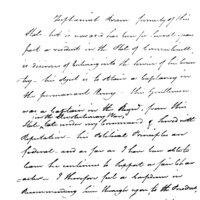 Zephaniah Rowe formerly of this
State but is now and has been for several years
past a resident in the State of
is desirous of entering into the service of his Coun-
try - his object is to obtain a Captaincy in
the permanent Army - this Gentleman
was a Captain in the Regt. from this
in the Revolutionary War,
State, late under my Command & served with
Reputation - his Political Principles are
federal - and as far as I have been able to
learn he continues to support a fair Char-
acter - I therefore feel a happiness in
Recommending him through you to the President